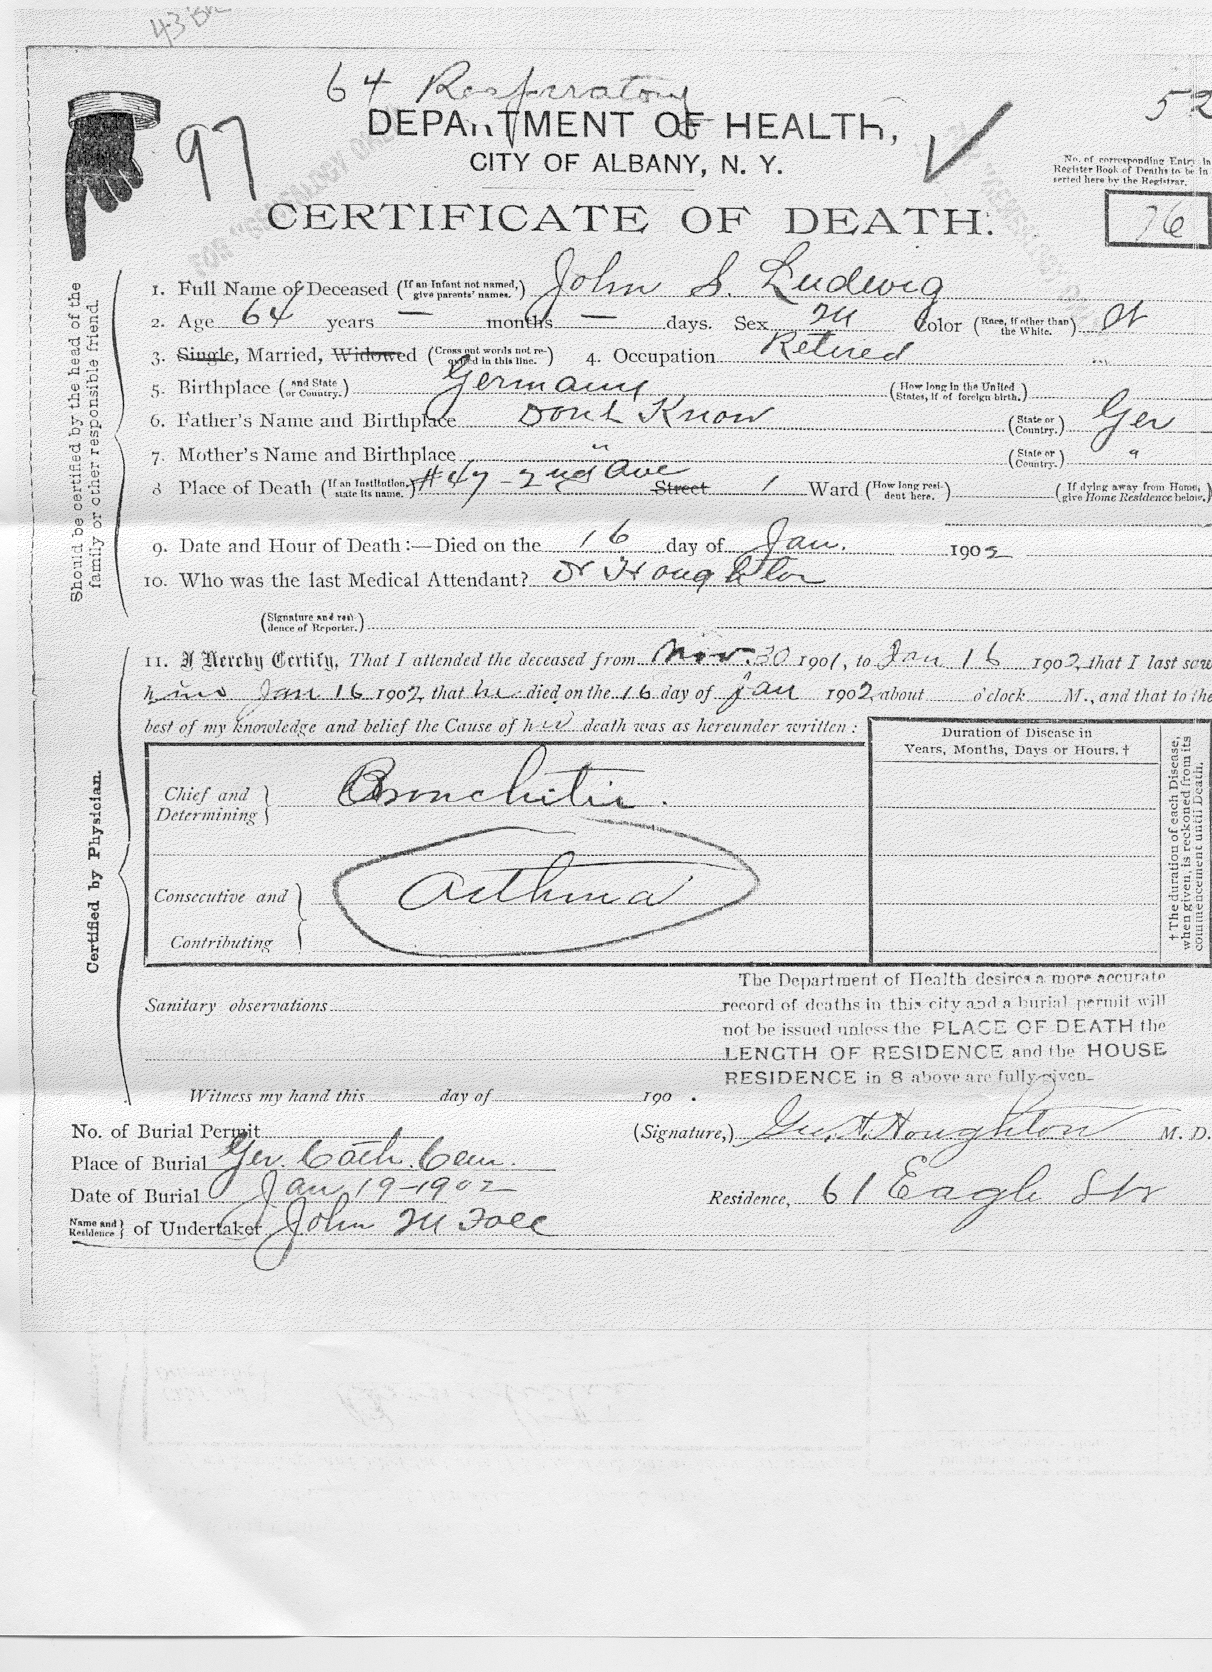 64 Respiratory
DEPARTMENT OF HEALTH,
52
97
CITY OF ALBANY, N. Y.
No. of corresponding Entry in
Register Book of Deaths to be in
serted here by the Registrar.
FOR "GENEALOGY ONLY"
CERTIFICATE OF DEATH.
76
1. Full Name of Deceased (If an Infant not named, give parents' names.) John S. Ludwig
2. Age 64 years — months — days. Sex M Color (Race, if other than the White.) W
3. Single, Married, Widowed (Cross out words not required in this line.) 4. Occupation Retired
5. Birthplace (and State or Country.) Germany (How long in the United States, if of foreign birth.)
6. Father's Name and Birthplace Dont Know (State or Country.) Ger
7. Mother's Name and Birthplace " (State or Country.) "
8 Place of Death (If an Institution, state its name.) #47 - 2nd Ave Street 1 Ward (How long resident here.) (If dying away from Home, give Home Residence below.)
9. Date and Hour of Death:—Died on the 16 day of Jan. 1902
10. Who was the last Medical Attendant? Dr Houghton
(Signature and residence of Reporter.)
Should be certified by the head of the
family or other responsible friend.
11. I Hereby Certify, That I attended the deceased from Nov. 30 1901, to Jan 16 1902, that I last saw
him Jan 16 1902, that he died on the 16 day of Jan 1902, about o'clock M., and that to the
best of my knowledge and belief the Cause of his death was as hereunder written:
Duration of Disease in
Years, Months, Days or Hours. †
Chief and
Determining
Bronchitis.
Consecutive and
Contributing
Asthma
† The duration of each Disease,
when given, is reckoned from its
commencement until Death.
Certified by Physician.
Sanitary observations
The Department of Health desires a more accurate
record of deaths in this city and a burial permit will
not be issued unless the PLACE OF DEATH the
LENGTH OF RESIDENCE and the HOUSE
RESIDENCE in 8 above are fully given.
Witness my hand this day of 190 .
No. of Burial Permit
(Signature,) Geo. H. Houghton M. D.
Place of Burial Ger. Cath. Cem.
Date of Burial Jan 19-1902
Residence, 61 Eagle Str
Name and Residence of Undertaker John M Foll